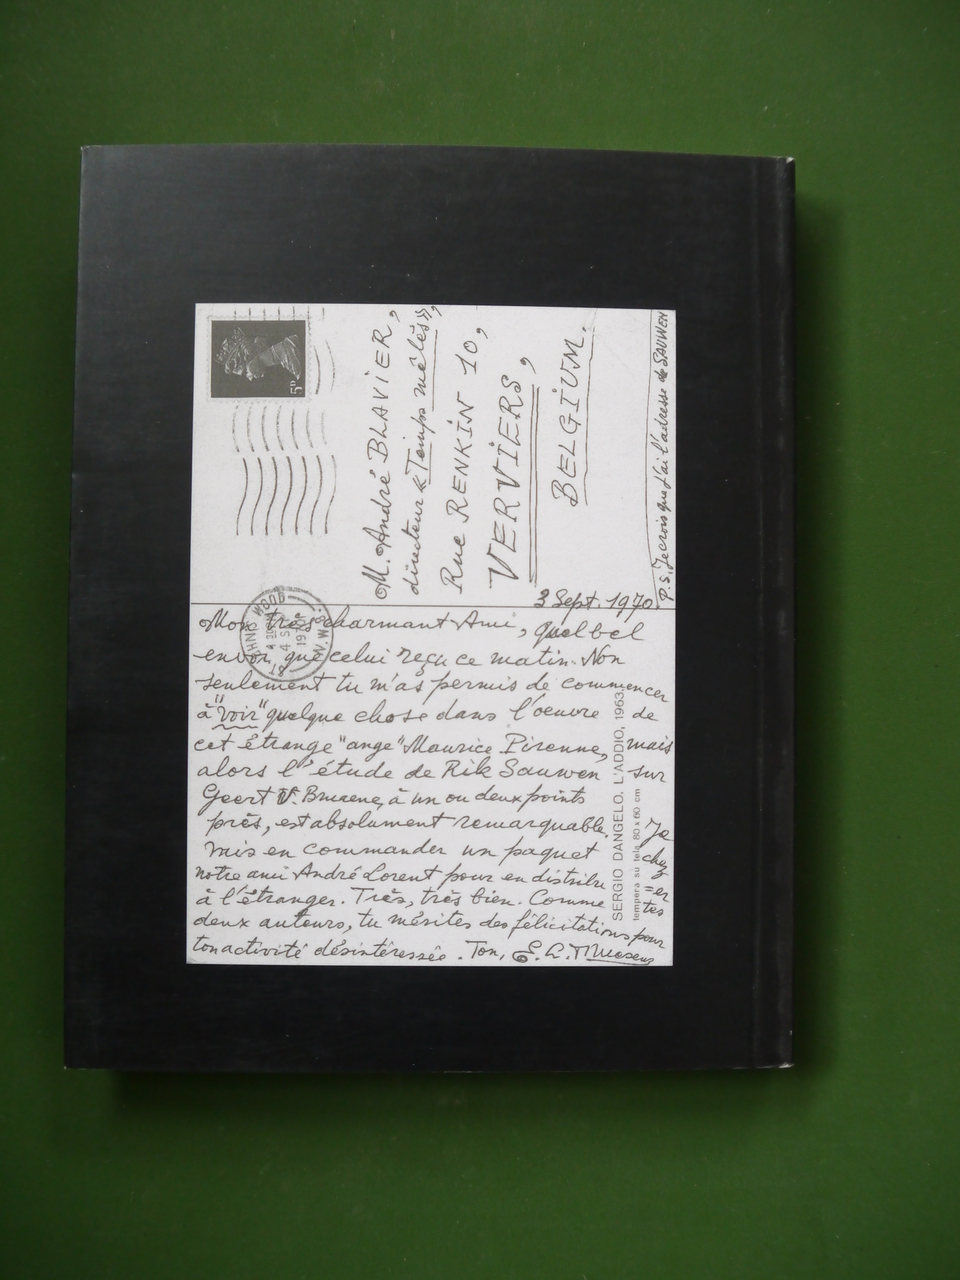 5P
M. André BLAVIER,
directeur « Temps mêlés»,
Rue RENKIN 10,
VERVIERS,
BELGIUM.
P.S. Je crois que j'ai l'adresse de SAUWEN
3 Sept. 1970.
Mon très charmant Ami, quel bel
envoi que celui reçu ce matin. Non
seulement tu m'as permis de commencer
à "voir" quelque chose dans l'oeuvre de
cet étrange "ange" Maurice Pirenne, mais
alors l'étude de Rik Sauwen sur
Geert V. Bruaene, à un ou deux points
près, est absolument remarquable. Je
vais en commander un paquet chez
notre ami André Lorent pour en distribu=er
à l'étranger. Très, très bien. Comme tes
deux auteurs, tu mérites des félicitations pour
ton activité désintéressée. Ton, E. L. T. Mesens
ST. JOHNS WOOD
4 S
1970
N.W.8.
SERGIO DANGELO. L'ADDIO, 1963.
tempera su tela 80 x 60 cm